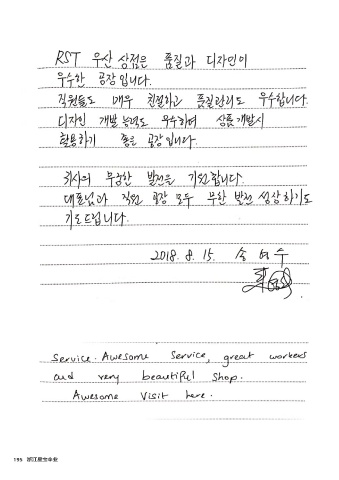 RST 우산 상점은 품질과 디자인이
우수한 공장입니다.
직원들도 매우 친절하고 품질관리도 우수합니다.
디자인 개발 능력도 우수하며 상품개발시
활용하기 좋은 공장입니다.
귀사의 무궁한 발전을 기원합니다.
대표님과 직원 공장 모두 무한 발전 성장하기도
기도드립니다.
2018. 8. 15.
Service. Awesome Service, great workers
and very beautiful shop.
Awesome Visit here.
195 浙江星宝伞业